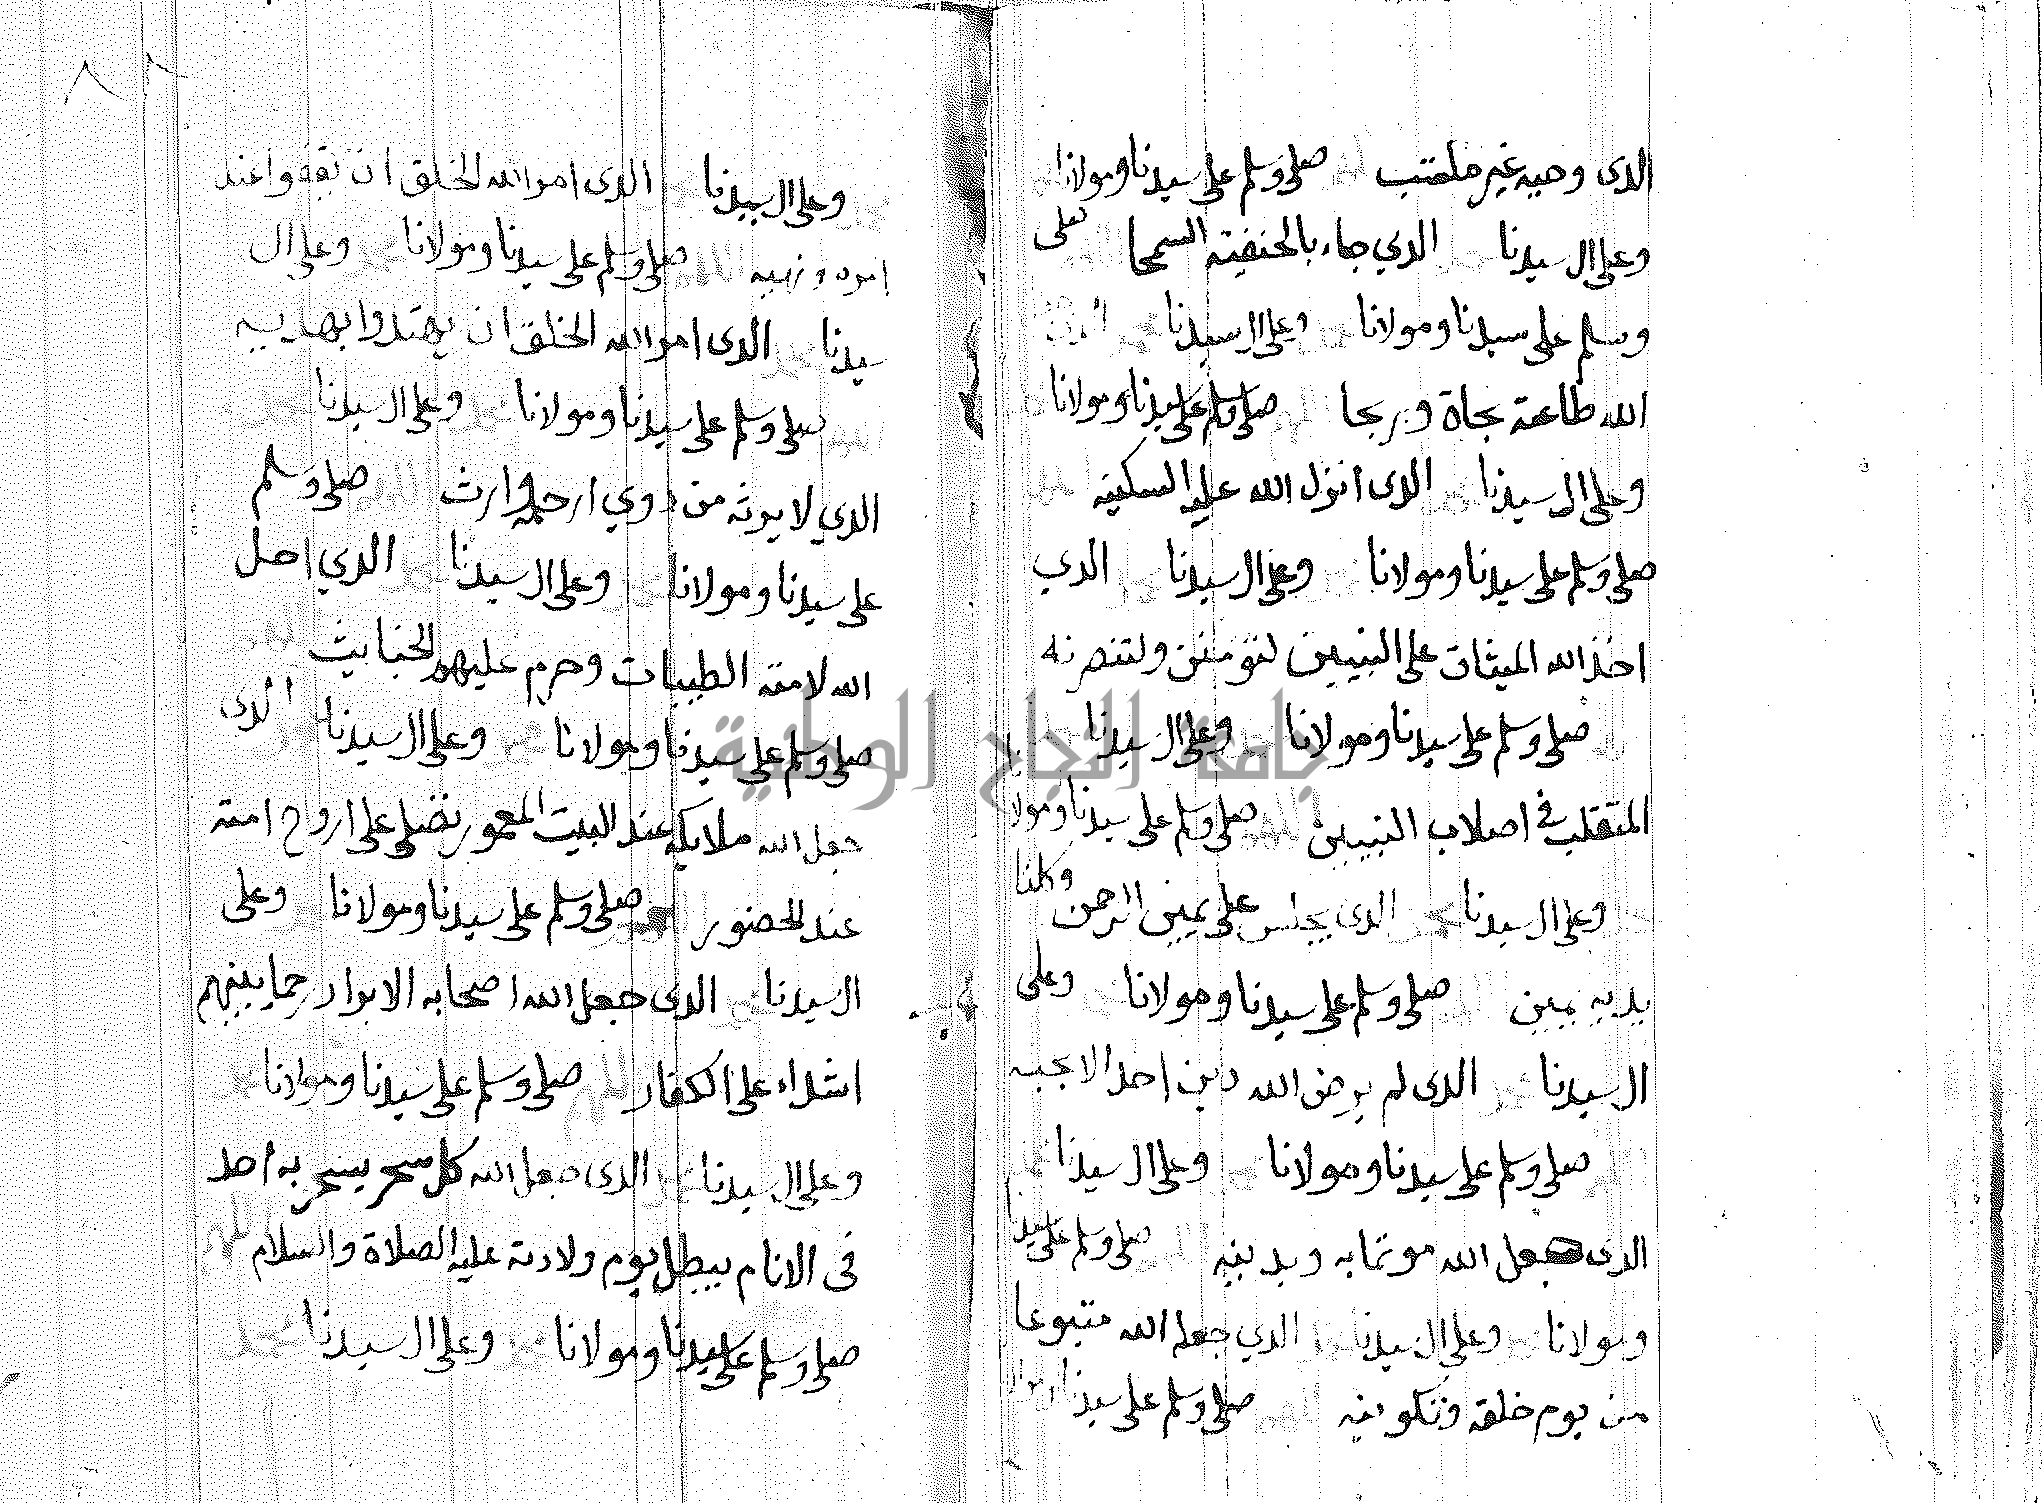 الذى وحيه غير ملتبب صلى وسلم على سيدنا ومولانا
وعلى ال سيدنا الذي جاء بالحنفيته السمحا صلى
وسلم على سيدنا ومولانا وعلى ال سيدنا
الله طاعته نجاة وبرجا صلى وسلم على سيدنا ومولانا
وعلى ال سيدنا الذى انزل الله عليه السكينه
صلى وسلم على سيدنا ومولانا وعلى ال سيدنا الذي
اخذ الله الميثاق على النبيين لتؤمنن ولتنصرنه
صلى وسلم على سيدنا ومولانا وعلى ال سيدنا
المتقلب فى اصلاب النبيين صلى وسلم على سيدنا ومولانا
وعلى ال سيدنا الذى يجلس على يمين الرحمن وكلتا
يديه يمين صلى وسلم على سيدنا ومولانا وعلى
ال سيدنا الذى لم يرض الله دين احد الا بحبه
صلى وسلم على سيدنا ومولانا وعلى ال سيدنا
الذى جعل الله موتمابه وبدينه صلى وسلم على سيدنا
ومولانا وعلى ال سيدنا الذي جعله الله متبوعا
من يوم خلقه وتكوينه صلى وسلم على سيدنا ومولانا
وعلى ال سيدنا الذى امر الله الخلق ان يقفوا عند
امره ونهيه صلى وسلم على سيدنا ومولانا وعلى ال
سيدنا الذى امر الله الخلق ان يهتدوا بهديه
صلى وسلم على سيدنا ومولانا وعلى ال سيدنا
الذي لا يرثه من ذوي ارحامه وارث صلى وسلم
على سيدنا ومولانا وعلى ال سيدنا الذي احل
الله لامته الطيبات وحرم عليهم الخبايث
صلى وسلم على سيدنا ومولانا وعلى ال سيدنا الذى
جعل الله ملايكه عند البيت المعمور تصلى على اروح امته
عند الحضور صلى وسلم على سيدنا ومولانا وعلى
ال سيدنا الذى جعل الله اصحابه الابرار رحما بينهم
اشداء على الكفار صلى وسلم على سيدنا ومولانا
وعلى ال سيدنا الذى جعل الله كل سحر يسحر به احد
فى الانام يبطل يوم ولادته عليه الصلاة والسلام
صلى وسلم على سيدنا ومولانا وعلى ال سيدنا
جامعة النجاح الوطنية